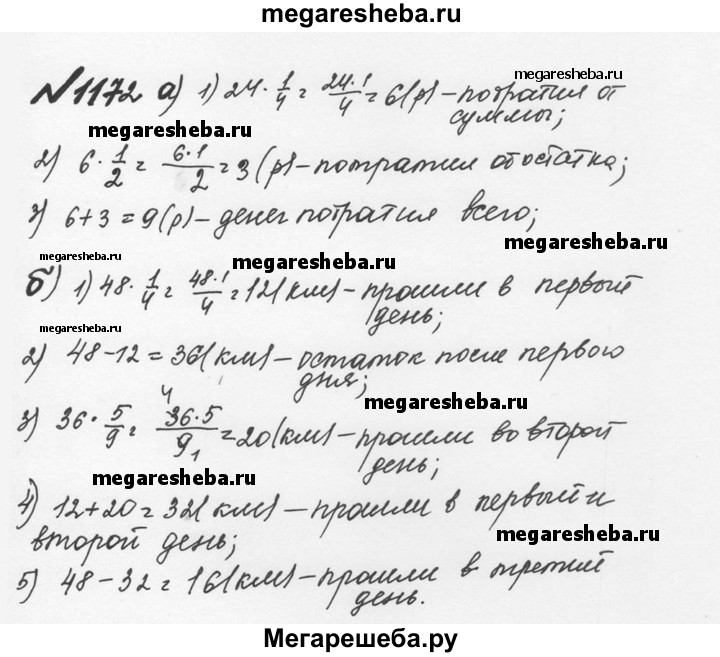 megaresheba.ru
№1172 а) 1) 24·1/4 = 24·1/4 = 6(р) – потратил от
суммы;
megaresheba.ru
megaresheba.ru
2) 6·1/2 = 6·1/2 = 3 (р) – потратил от остатка;
3) 6+3 = 9(р) – денег потратил всего;
megaresheba.ru
megaresheba.ru
megaresheba.ru
б) 1) 48·1/4 = 48·1/4 = 12(км) – прошли в первый
день;
megaresheba.ru
2) 48-12 = 36(км) – остаток после первого
дня;
megaresheba.ru
3) 36·5/9 = 36·5/9 = 20(км) – прошли во второй
4 1
день;
megaresheba.ru
4) 12+20 = 32(км) – прошли в первый и
второй день;
megaresheba.ru
5) 48-32 = 16(км) – прошли в третий
день.
Мегарешеба.ру